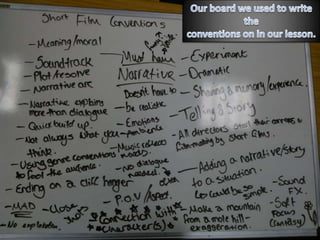 Our board we used to write
the
conventions on in our lesson.
Short Film Conventions
- Meaning/moral
- Soundtrack
- Plot/resolve
- Narrative arc
- Narrative explains
more than dialogue
- Quick build up
- Not always what you
think.
- Using genre conventions
to fool the audience.
- Ending on a cliff hanger
- MAD
- Close
- No explanation
Must have
Narrative
Doesn't have to
be realistic
- Emotions
- Ambience
- Music
needs
- No dialogue
needed.
- P.O.V
- Connection with
character(s)
- Experiment
- Dramatic
- Sharing a memory/experience.
- Telling a story
- All directors start their careers
by short films.
- Adding a narrative/story
to a situation.
could be so simple
- Make a mountain
from a mole hill -
exaggeration.
- Sound
FX.
- Soft
Focus
(fantasy)